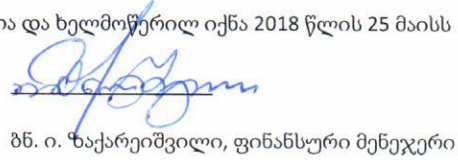 და ხელმოწერილ იქნა 2018 წლის 25 მაისს
ბნ. ი. ზაქარეიშვილი, ფინანსური მენეჯერი